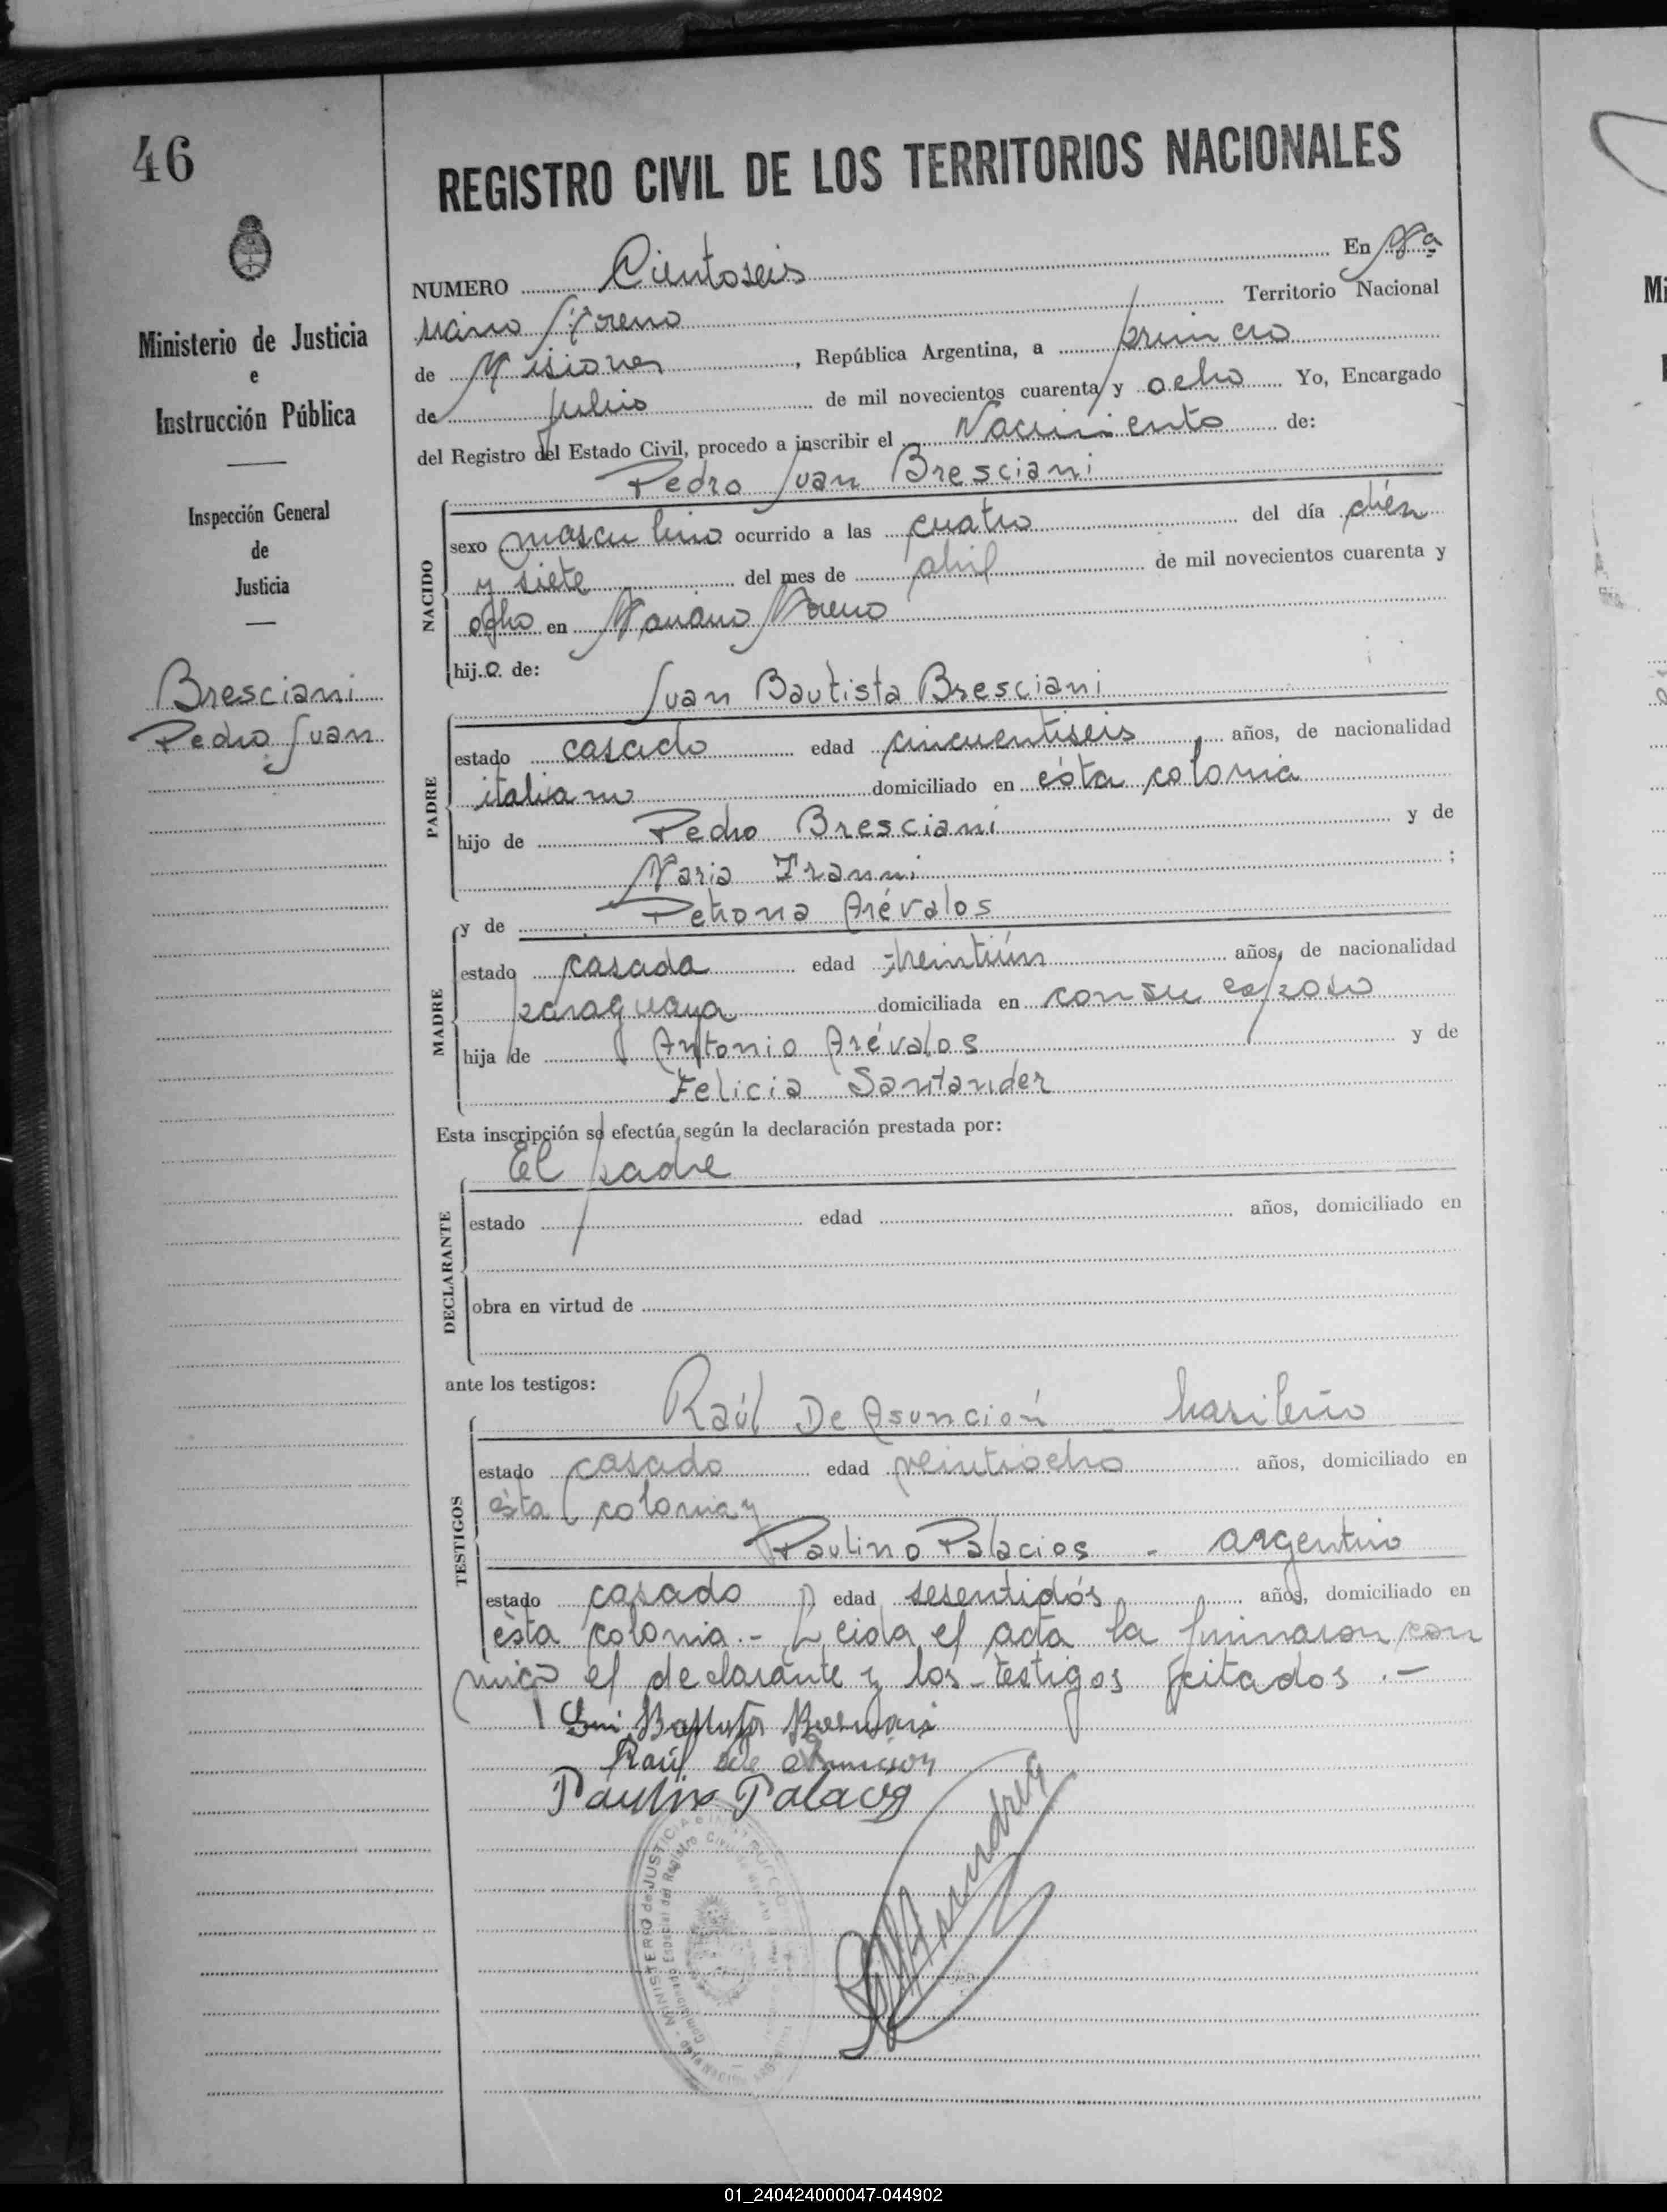 46
REGISTRO CIVIL DE LOS TERRITORIOS NACIONALES
Ministerio de Justicia
e
Instrucción Pública
Inspección General
de
Justicia
Bresciani
Pedro Juan
NUMERO Cientoseis En Ma
riano Moreno Territorio Nacional
de Misiones, República Argentina, a primero
de julio de mil novecientos cuarenta y ocho Yo, Encargado
del Registro del Estado Civil, procedo a inscribir el Nacimiento de:
Pedro Juan Bresciani
NACIDO
sexo masculino ocurrido a las cuatro del día diéz
y siete del mes de abril de mil novecientos cuarenta y
ocho en Mariano Moreno
hij.o. de:
Juan Bautista Bresciani
PADRE
estado casado edad cincuentiseis años, de nacionalidad
italiano domiciliado en ésta colonia
hijo de Pedro Bresciani y de
Maria Franni ;
y de Petrona Arévalos
MADRE
estado casada edad treintiún años, de nacionalidad
paraguaya domiciliada en con su esposo
hija de Antonio Arévalos y de
Felicia Santander
Esta inscripción se efectúa según la declaración prestada por:
El padre
DECLARANTE
estado edad años, domiciliado en
obra en virtud de
ante los testigos:
Raúl De Asunción - brasileño
TESTIGOS
estado casado edad veintiocho años, domiciliado en
ésta colonia y
Paulino Palacios - argentino
estado casado edad sesentidós años, domiciliado en
ésta colonia.- Leida el acta la firmaron con
migo el declarante y los testigos citados.-
Raúl de Asuncion
Paulino Palacios
MINISTERIO de JUSTICIA e INSTRUCCION
01_240424000047-044902